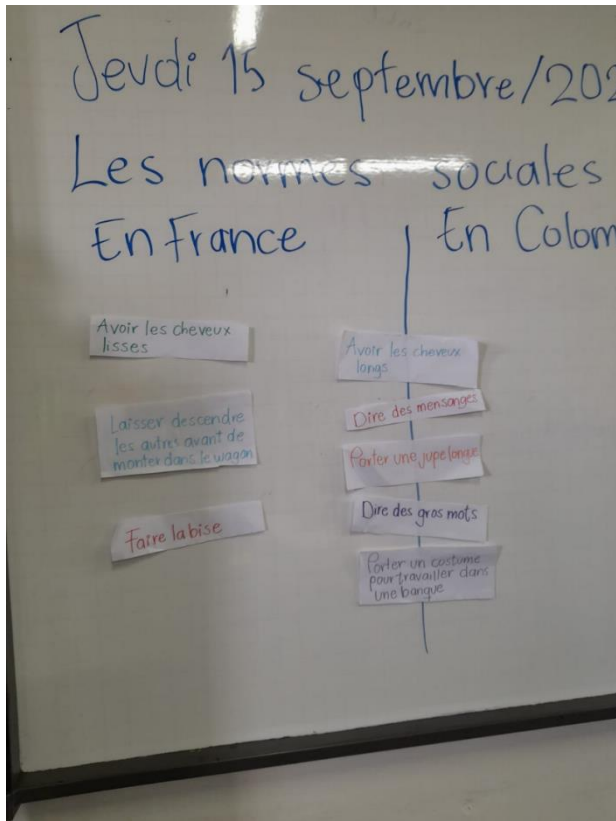 Jeudi 15 septembre/202
Les normes sociales
En France
En Colom
Avoir les cheveux
lisses
Laisser descendre
les autres avant de
monter dans le wagon
Faire la bise
Avoir les cheveux
longs
Dire des mensanges
Porter une jupe longue
Dire des gros mots
Porter un costume
pour travailler dans
une banque